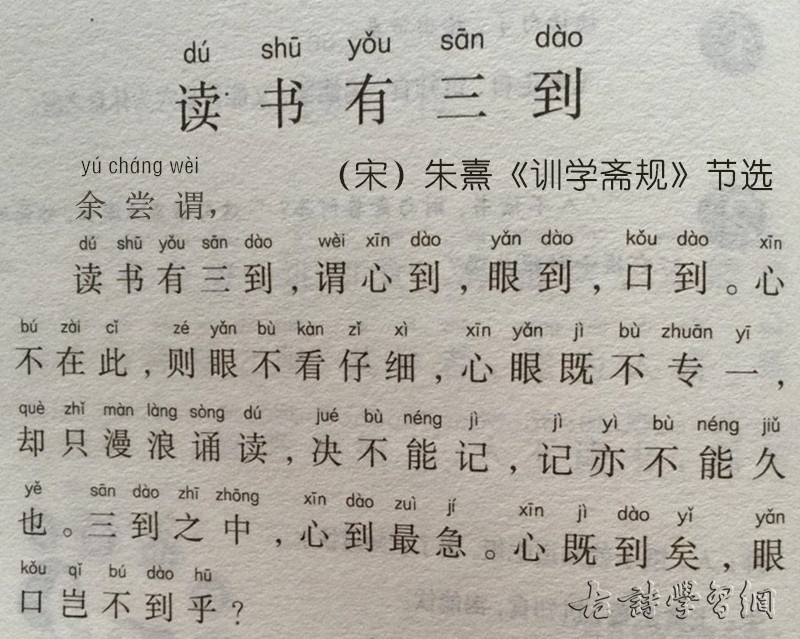 dú shū yǒu sān dào
读书有三到
yú cháng wèi
(宋)朱熹《训学斋规》节选
余尝谓，
dú shū yǒu sān dào wèi xīn dào yǎn dào kǒu dào xīn
读书有三到，谓心到，眼到，口到。心
bú zài cǐ zé yǎn bù kàn zǐ xì xīn yǎn jì bù zhuān yī
不在此，则眼不看仔细，心眼既不专一，
què zhǐ màn làng sòng dú jué bù néng jì jì yì bù néng jiǔ
却只漫浪诵读，决不能记，记亦不能久
yě sān dào zhī zhōng xīn dào zuì jí xīn jì dào yǐ yǎn
也。三到之中，心到最急。心既到矣，眼
kǒu qǐ bú dào hū
口岂不到乎？
古詩學習網